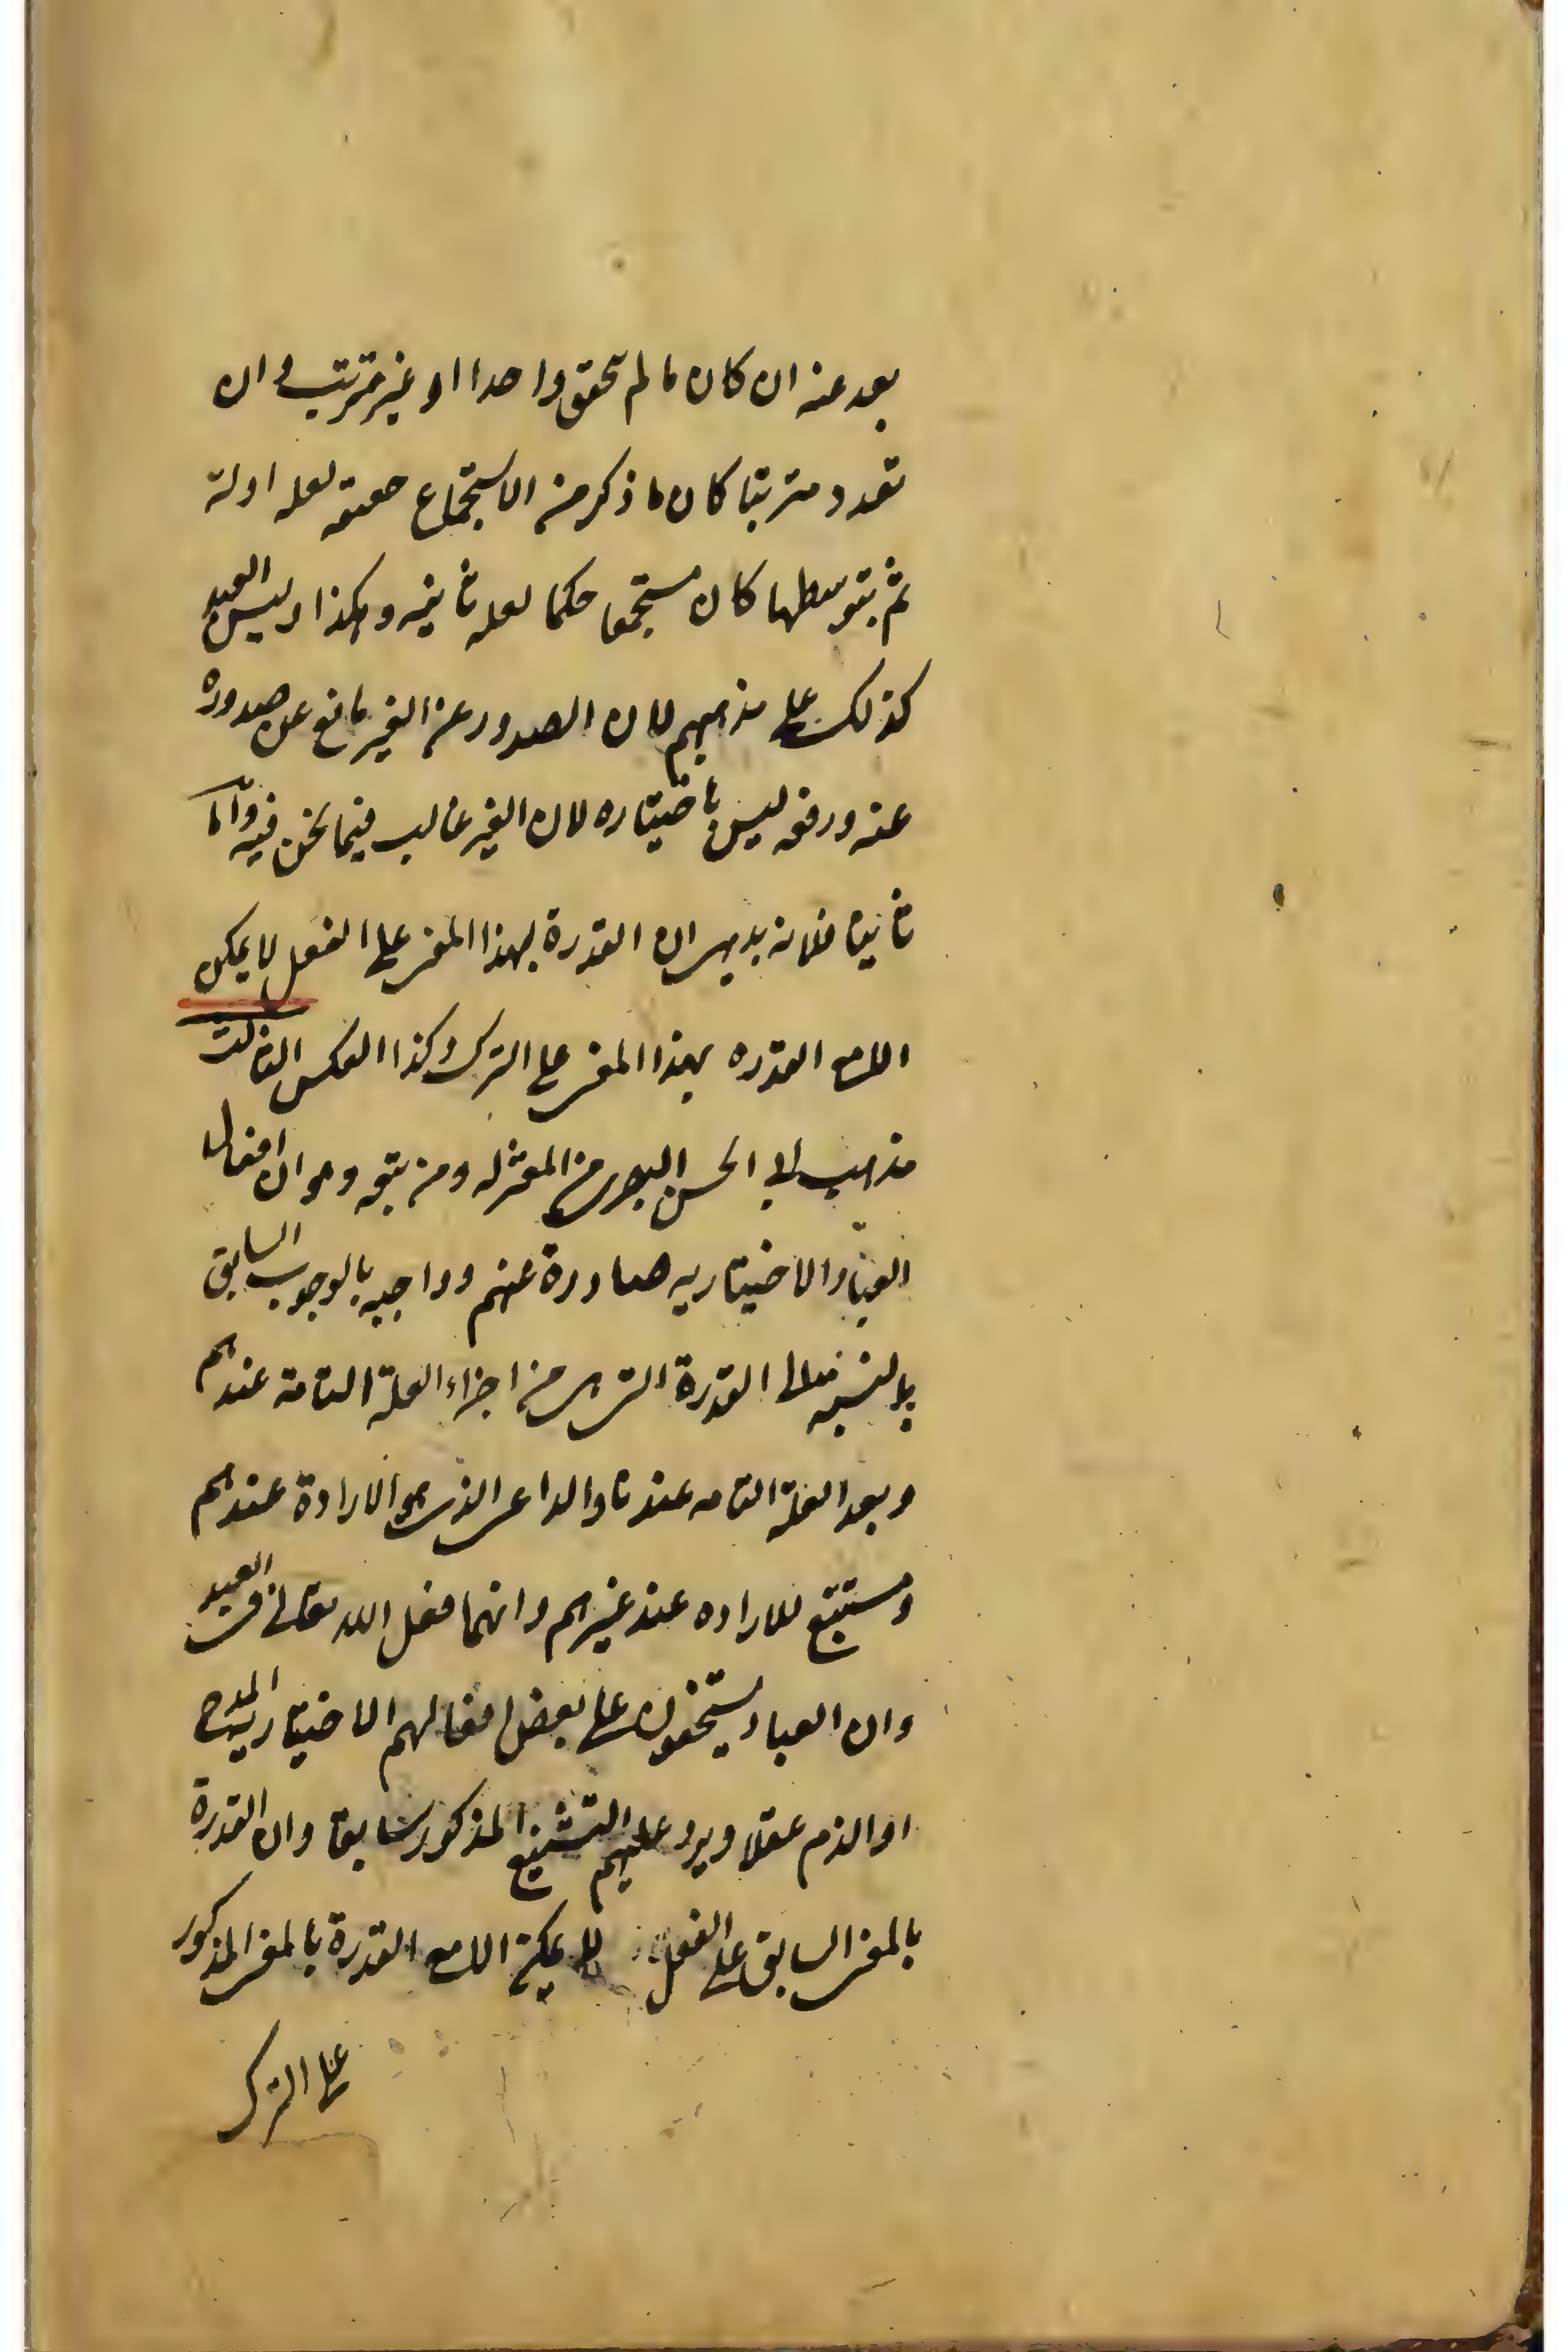 بعد عنه ان كان ما لم تحقق واحدا او غير مترتب وان
تعدد مترتبا كان ما ذكر من الاستجماع حقيقه لعله اولة
ثم بتوسطها كان مستجمعا حكما لعله ثانيه وهكذا وليس العبد
كذلك على مذهبهم لان الصدور عن الغير مانع عن صدوره
عنه ورفعه ليس باختياره لان الغير غالب فيما نحن فيه واما
ثانيا فلانه بديهي ان القدرة بهذا المعنى على الفعل لا يمكن
الا مع القدره بهذا المعنى على الترك وكذا العكس الثالث
مذهب ابي الحسن البصري من المعتزله ومن تبعه وهو ان افعال
العباد الاختياريه صادرة عنهم وواجبه بالوجوب السابق
بالنسبه الى القدرة التي هي من اجزاء العلة التامة عندهم
وبعد العلة التامه عندنا والداعي الذي هو الارادة عندهم
ومستتبع للاراده عند غيرهم وانهما فعل الله تعالى في العبد
وان العباد يستحقون على بعض افعالهم الاختياريه المدح
او الذم عقلا ويرد عليهم التشنيع المذكور سابقا وان القدرة
بالمعنى السابق على الفعل لا يمكن الا مع القدرة بالمعنى المذكور
على الترك